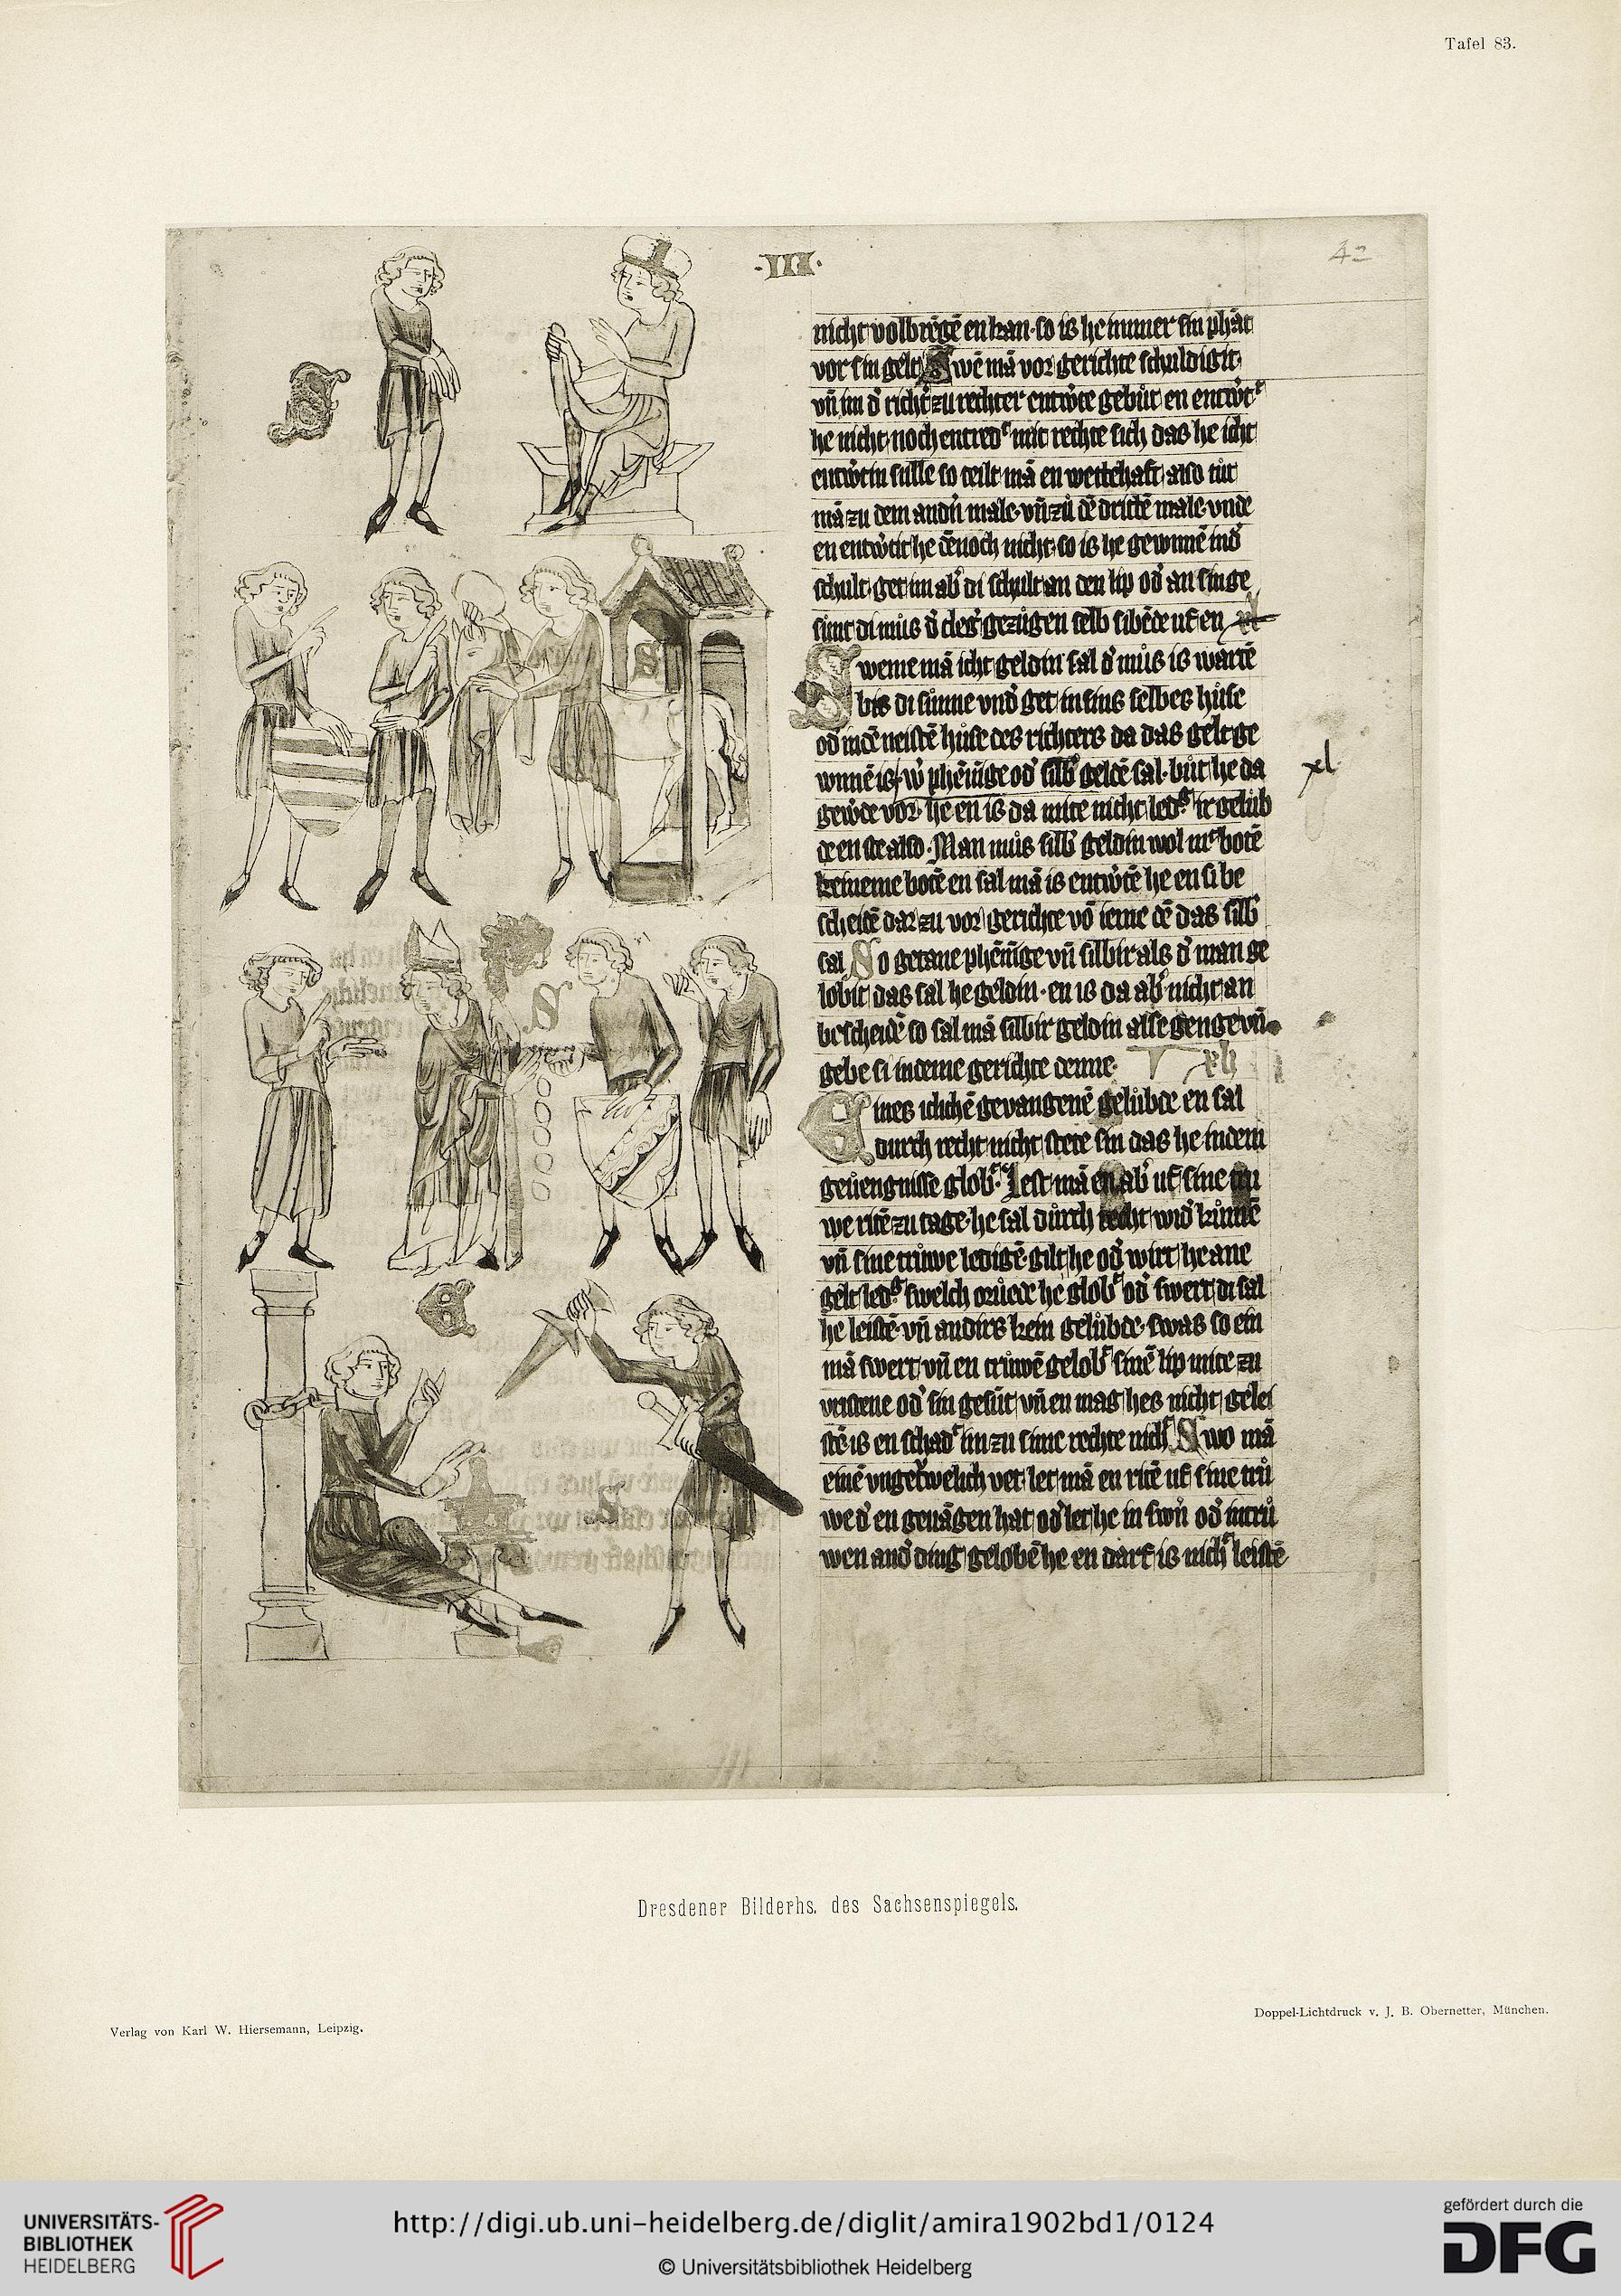 Tafel 83.
·III·
42
nicht volbrēgē en kan · so is he immer sin phāt
vor sin gelt Swē mā vor gerichte schuldigit ·
vn̄ im d' richt' zu rechter entw'te gebut en entw't
he nicht noch entred' mit rechte sich das he icht
entw'tin sulle so teilt mā en wettehaft also tut
mā zu dem andn male · vn̄ zu dē drittē male · vnde
en entw'tit he dēnoch nicht · so is he gewunnē in d'
schult · get im ab' di schult an den lip od' an singe
sunt di mus d' cleg' gezugen selb sibēde uf en xl
Sweme mā icht geldin sal d' mus is wartē
bis di sunne vnd' get in sins selbes huse
od' in dē neistē huse des richters da das gelt ge
wunnē is · w' phēnige od' silb' geldē sal · but he da
gew'de vor · he en is da mite nicht led' ir gelub
de en ste also · Man mus silb' geldin wol mit botē
keineme botē en sal mā is entw'tē he en si be
scheidē dar zu vor gerichte vō ieme dē das silb'
sal So getane phēnīge vn̄ silbir als d' man ge
lobit das sal he geldin · en is da ab' nicht an
bescheidē so sal mā silbir geldin alse genge vn̄
gebe si in deme gerichte denne · xli
xl.
Eines iclichē gevangenē gelubde en sal
durch recht nicht stete sin das he in dem
gevengnisse glob' · Lest mā en ab' uf sine tru
we ritē zu tage · he sal durch recht wid' kumē
vn̄ sine truwe ledigē · gilt he od' wirt he ane
gelt led' · swelch orvede he glob' od' swert di sal
he leistē · vn̄ andirs kein gelubde · swas so ein
mā swert vn̄ en truwē gelob' sinē lip mite zu
vristene od' sin gesut vn̄ en mag hes nicht gelei
stē · is en schad' im zu sime rechte nich' Swo mā
einē vngetwelich vet · let mā en ritē uf sine tru
we d' en gevāgen hat od' let he in swn̄ od' intru
wen and' ding gelobē he en darf is nich' leistē
Dresdener Bilderhs. des Sachsenspiegels.
Verlag von Karl W. Hiersemann, Leipzig.
Doppel-Lichtdruck v. J. B. Obernetter, München.
UNIVERSITÄTS-
BIBLIOTHEK
HEIDELBERG
http://digi.ub.uni-heidelberg.de/diglit/amira1902bd1/0124
© Universitätsbibliothek Heidelberg
gefördert durch die
DFG